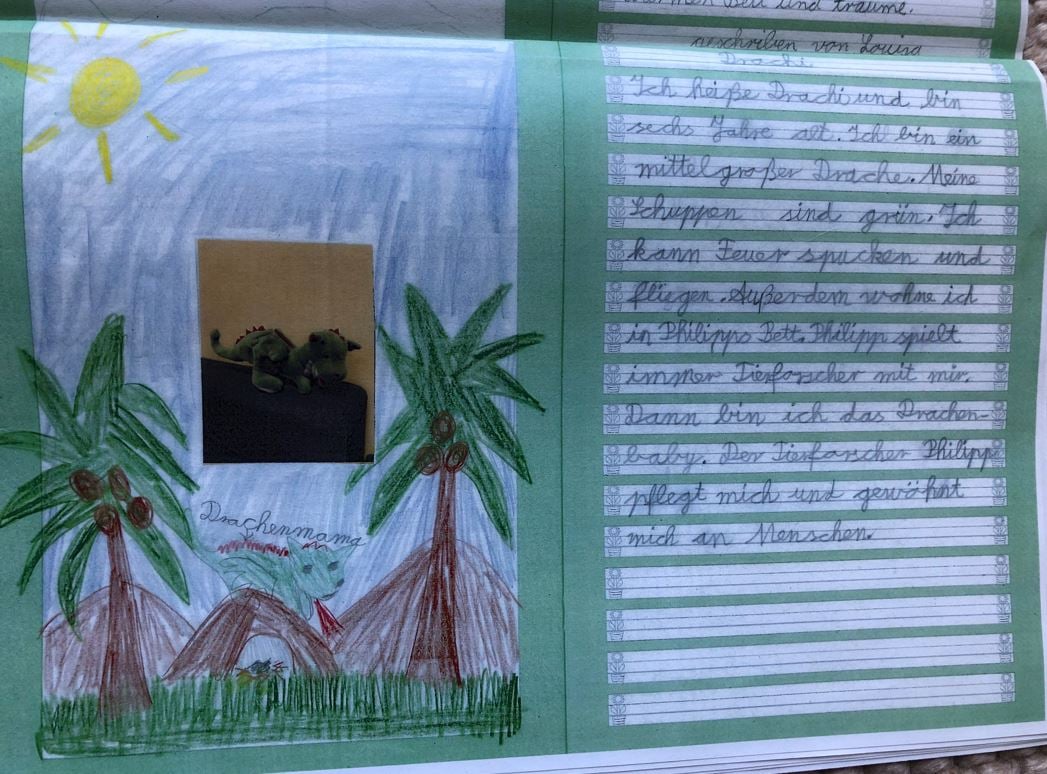 warmen Bett und träume.
geschrieben von Louisa
Drachi
Ich heiße Drachi und bin
sechs Jahre alt. Ich bin ein
mittelgroßer Drache. Meine
Schuppen sind grün. Ich
kann Feuer spucken und
fliegen. Außerdem wohne ich
in Philipps Bett. Philipp spielt
immer Tierforscher mit mir.
Dann bin ich das Drachen-
baby. Der Tierforscher Philipp
pflegt mich und gewöhnt
mich an Menschen.
Drachenmama